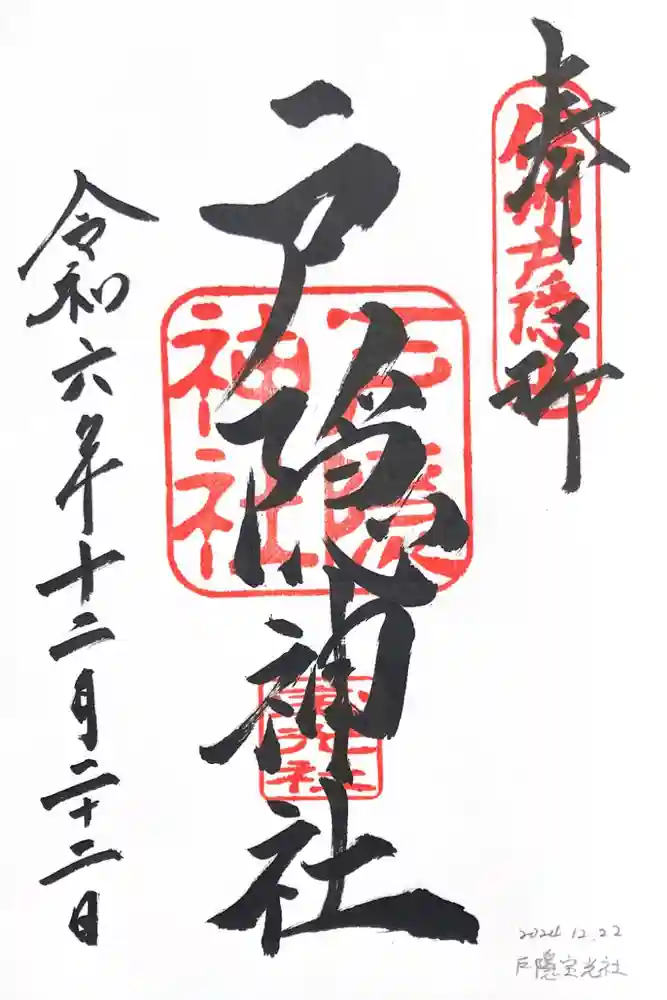 奉拝
信州戸隠山
戸隠神社
戸隠神社
宝光社
令和六年十二月二十二日
2024 12.22
戸隠宝光社